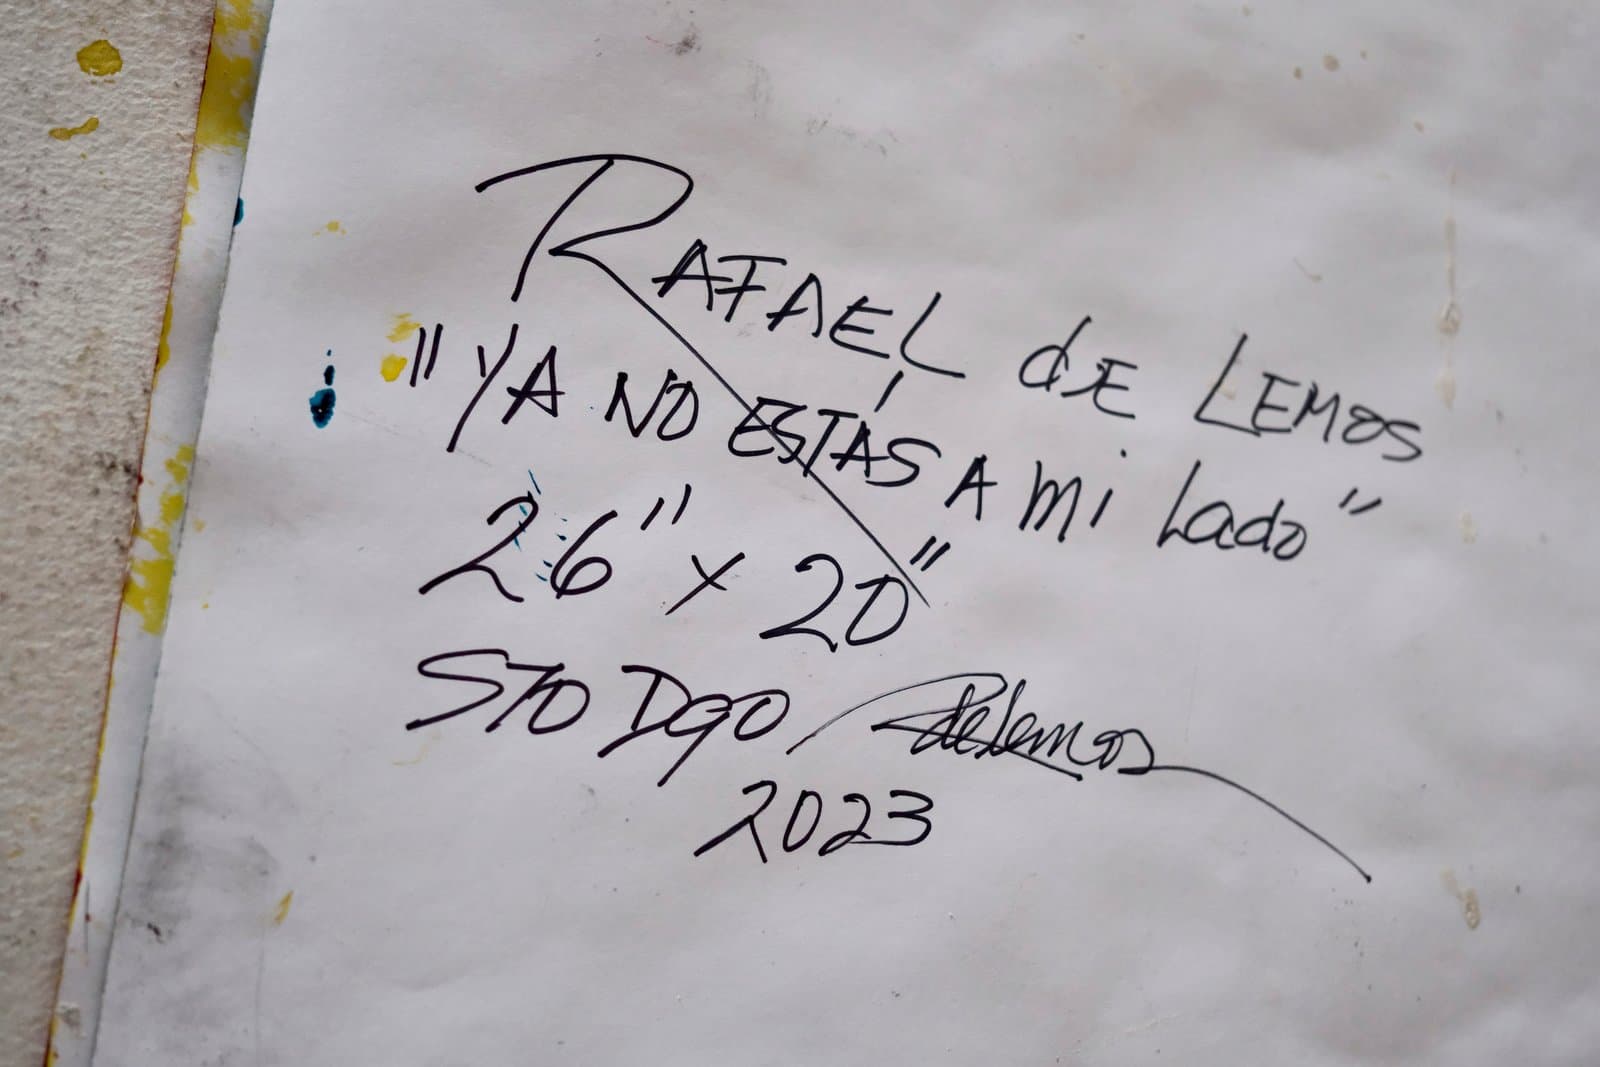 RAFAEL de LEMOS
"YA NO ESTÁS A mi Lado"
26" x 20"
STO DGO RdeLemos
2023